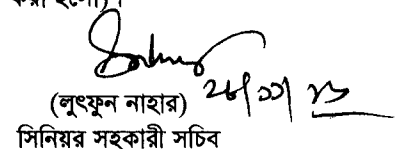 করা হলো)।
(লুৎফুন নাহার)
সিনিয়র সহকারী সচিব